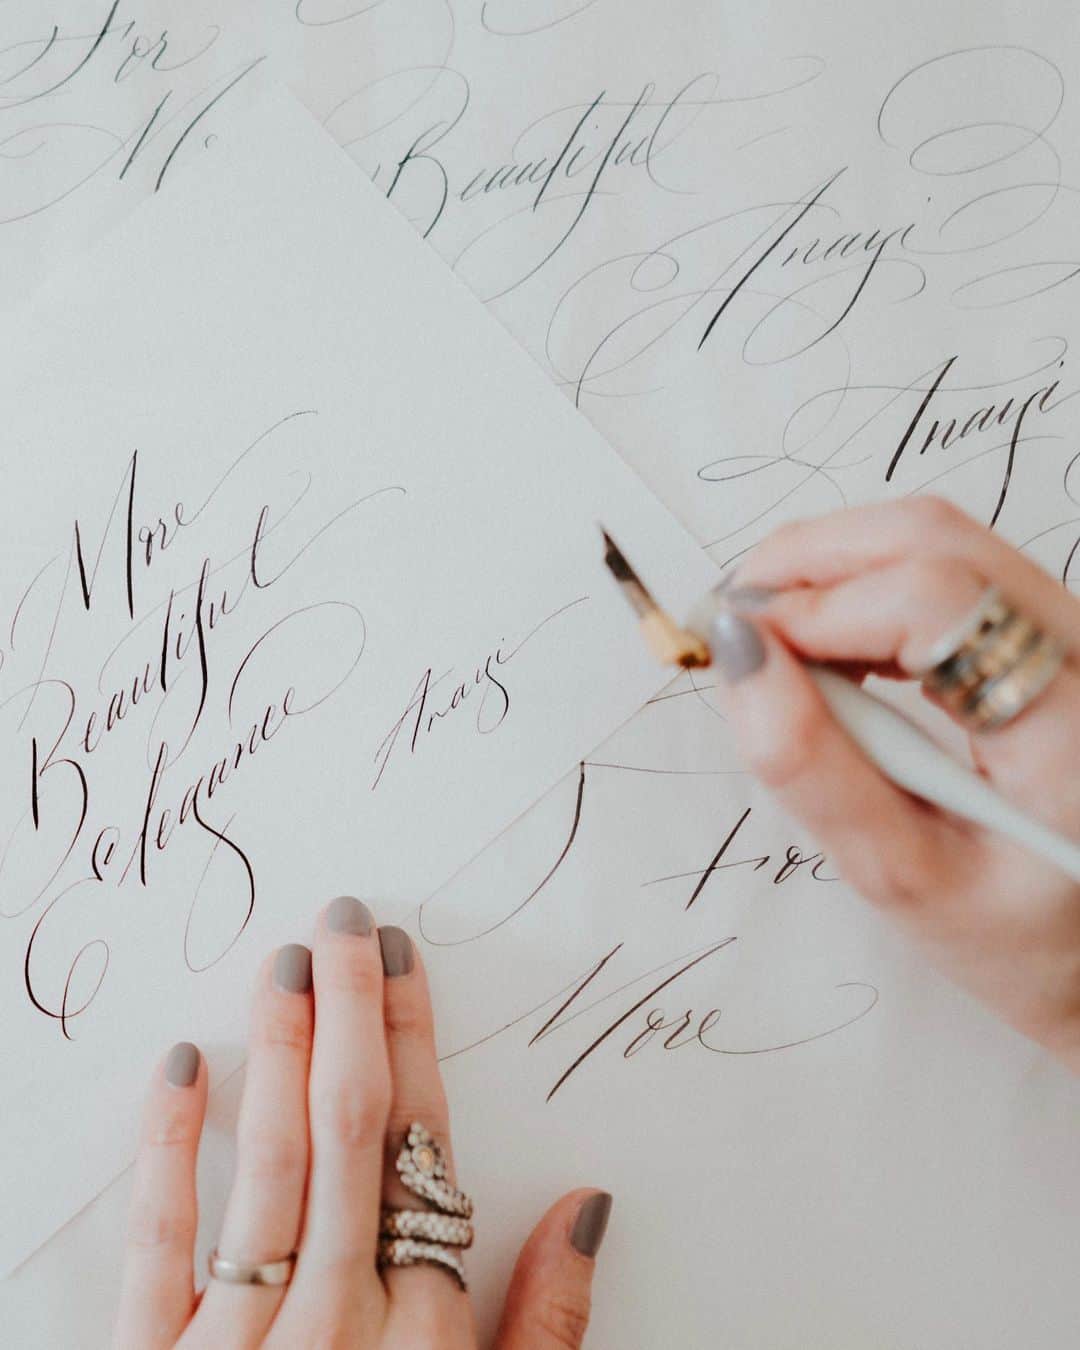 For
M
Beautiful
Anayi
Anayi
More
Beautiful
Elegance
Anayi
For
More